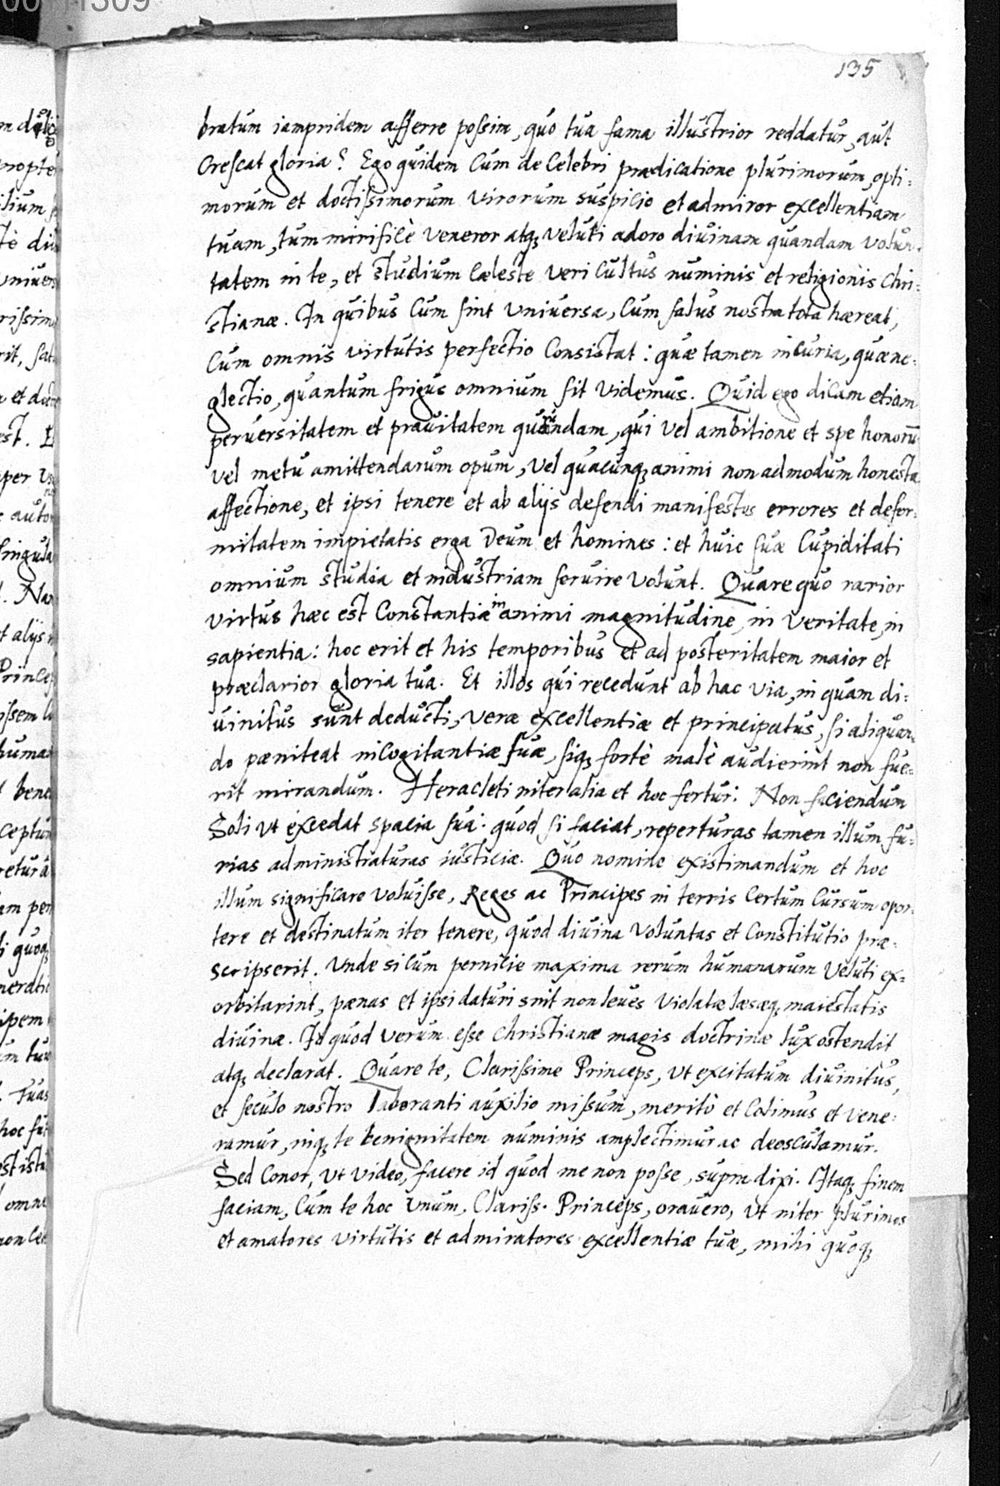 135
bratum iampridem afferre possim, quo tua fama illustrior reddatur, aut
Crescat gloria? Ego quidem Cum de Celebri prædicatione plurimorum, opti:
morum et doctissimorum virorum suspicio et admiror excellentiam
tuam, tum mirificè veneror atq; veluti adoro diuinam quandam volun:
tatem in te, et studium Cæleste veri Cultus numinis et religionis Chri:
stianæ. In quibus Cum sint vniversa, Cum salus nostra tota hæreat,
Cum omnis virtutis perfectio Consistat: quæ tamen incuria, quæ ne:
glectio, quantum frigus omnium sit videmus. Quid ego dicam etiam
perversitatem et prauitatem quorundam, qui vel ambitione et spe honorū
vel metu amittendarum opum, vel quacunq; animi non admodum honesta
affectione, et ipsi tenere et ab alijs defendi manifestos errores et defor:
mitatem impietatis erga Deum et homines: et huic suæ Cupiditati
omnium studia et industriam servire volunt. Quare quo rarior
virtus hæc est Constantiæ in animi magnitudine, in veritate, in
sapientia: hoc erit et his temporibus et ad posteritatem maior et
præclarior gloria tua. Et illos qui recedunt ab hac via, in quam di:
uinitus sunt deducti, veræ excellentiæ et principatus, si aliquan:
do pæniteat incogitantiæ suæ, siq; fortè malè audierint non fue:
rit mirandum. Heracleti inter alia et hoc fertur: Non faciendum
Soli vt excedat spacia sua: quod si faciat, reperturas tamen illum fu:
rias administraturas iusticiæ. Quo nomine existimandum et hoc
illum significare voluisse, Reges ac Principes in terris Certum Cursum opor:
tere et destinatum iter tenere, quod diuina voluntas et Constitutio præ:
scripserit. Vnde si cum pernicie maxima rerum humanarum veluti ex:
orbitarint, pænas et ipsi daturi sint non leues violatæ læsæq; maiestatis
diuinæ. Id quod verum esse Christianæ magis doctrinæ lux ostendit
atq; declarat. Quare te, Clarissime Princeps, vt excitatum diuinitus,
et seculo nostro laboranti auxilio missum, meritò et Colimus et vene:
ramur, inq; te benignitatem numinis amplectimur ac deosculamur.
Sed Conor, vt video, facere id quod me non posse, supra dixi. Itaq; finem
faciam, Cum te hoc vnum, Clariss. Princeps, orauero, vt inter plurimos
et amatores virtutis et admiratores excellentiæ tuæ, mihi quoq;